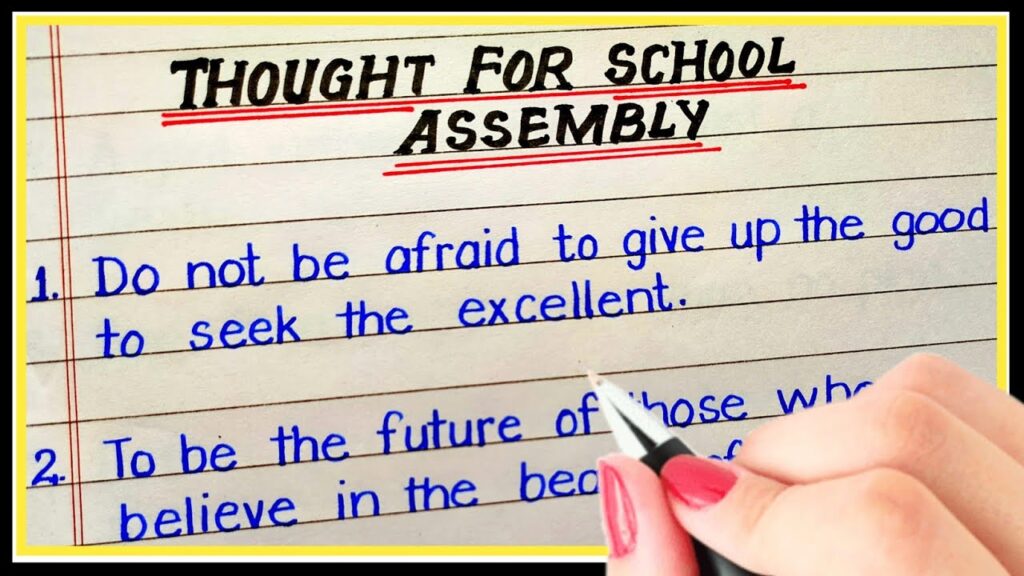 THOUGHT FOR SCHOOL
ASSEMBLY
1. Do not be afraid to give up the good
to seek the excellent.
2. To be the future of those
believe in the